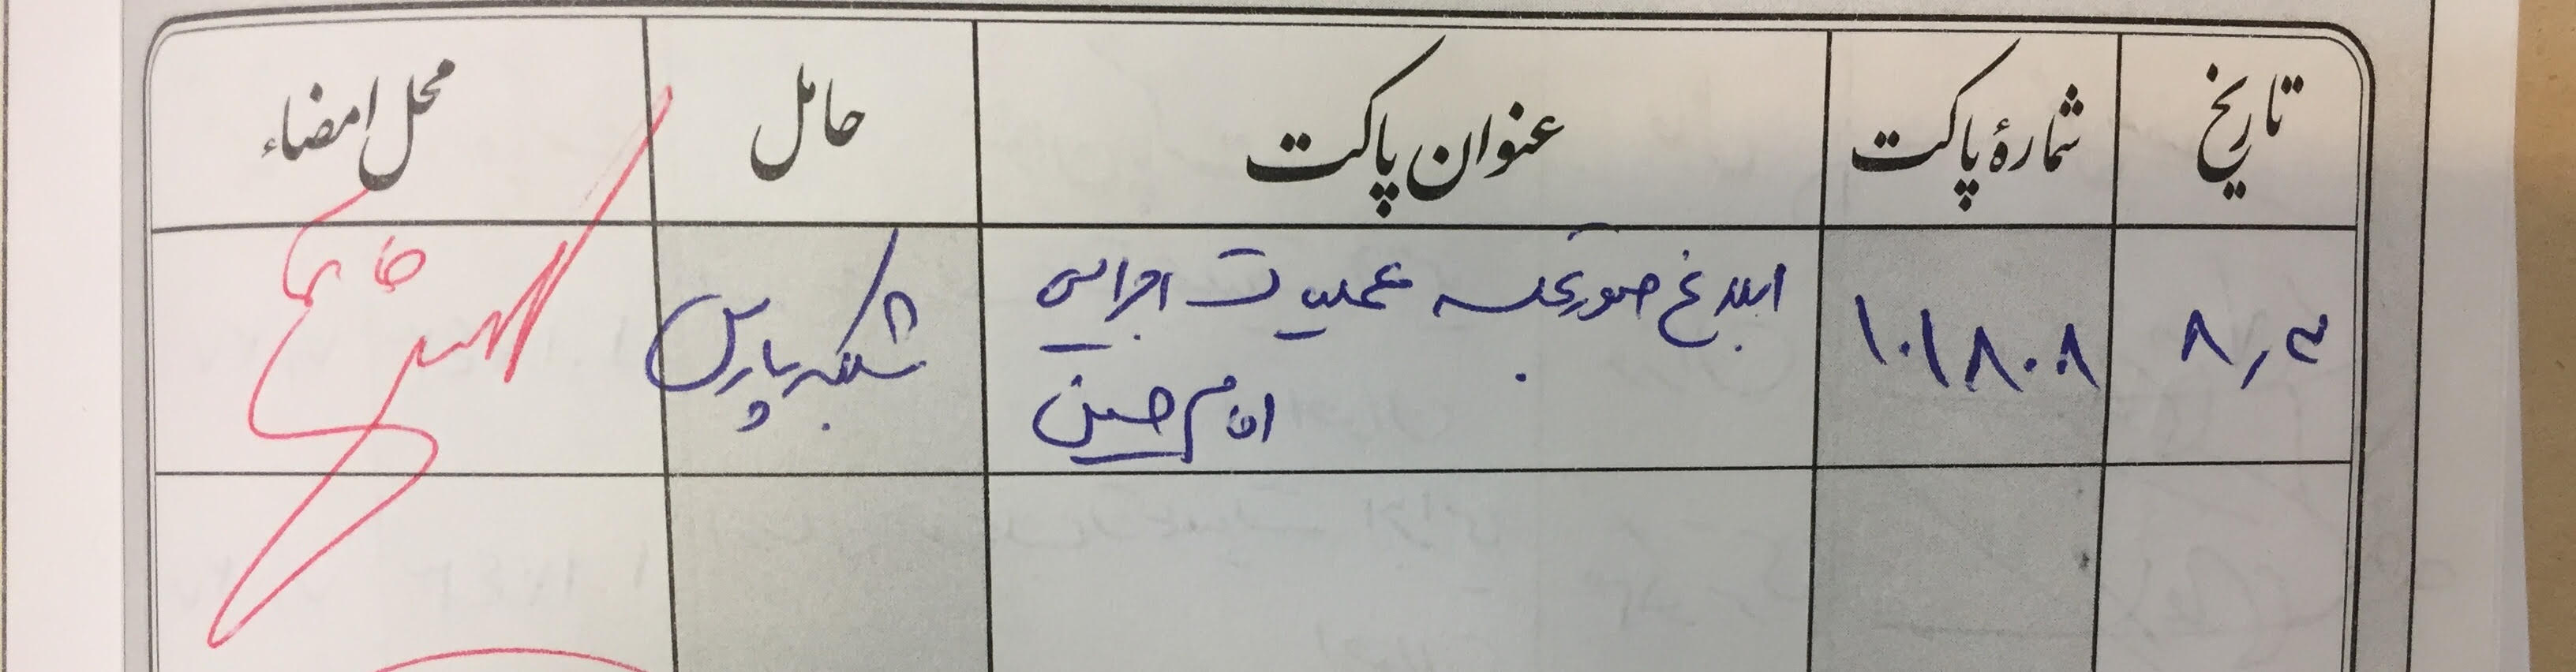 تاریخ
شمارهٔ پاکت
عنوان پاکت
حامل
محل امضاء
۸٫۳
۱۰۱۸۰۸
ابلاغ صورتجلسه عملیات اجرایی
امام حسین
شبکه پارس